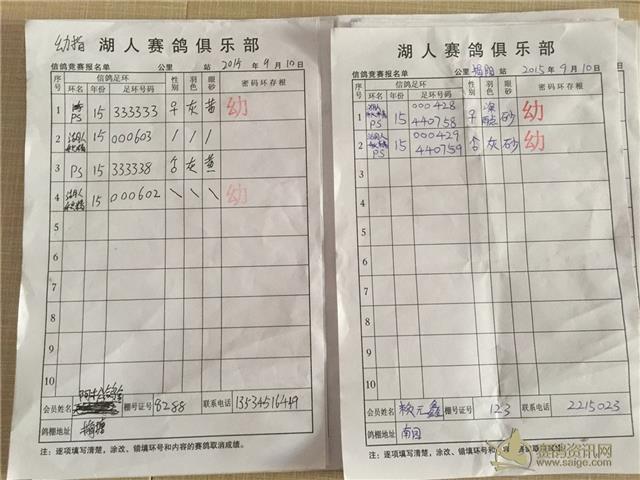 幼指 湖人赛鸽俱乐部
信鸽竞赛报名单 公里 站 2015 年 9 月 10 日
序号 信鸽足环 性别 羽色 眼砂 密码环存根
环名 年份 足环号码
1 PS 15 333333 平 灰 黄 幼
2 湖人 15 000603 / / /
3 PS 15 333338 灰 黄
4 湖人 15 000602 \ \ \ 幼
5
6
7
8
9
10
会员姓名 棚号证号 8288 联系电话 13534516449
鸽棚地址
注：逐项填写清楚，涂改、错填环号和内容的赛鸽取消成绩。
湖人赛鸽俱乐部
信鸽竞赛报名单 公里 揭阳 站 2015 年 9 月 10 日
序号 信鸽足环 性别 羽色 眼砂 密码环存根
环名 年份 足环号码
1 湖人 PS 15 000428 440758 平 深 砂 幼
2 湖人 PS 15 000429 440759 灰 砂 幼
3
4
5
6
7
8
9
10
会员姓名 元鑫 棚号证号 123 联系电话 2215023
鸽棚地址
注：逐项填写清楚，涂改、错填环号和内容的赛鸽取消成绩。
赛鸽资讯网
www.saige.com